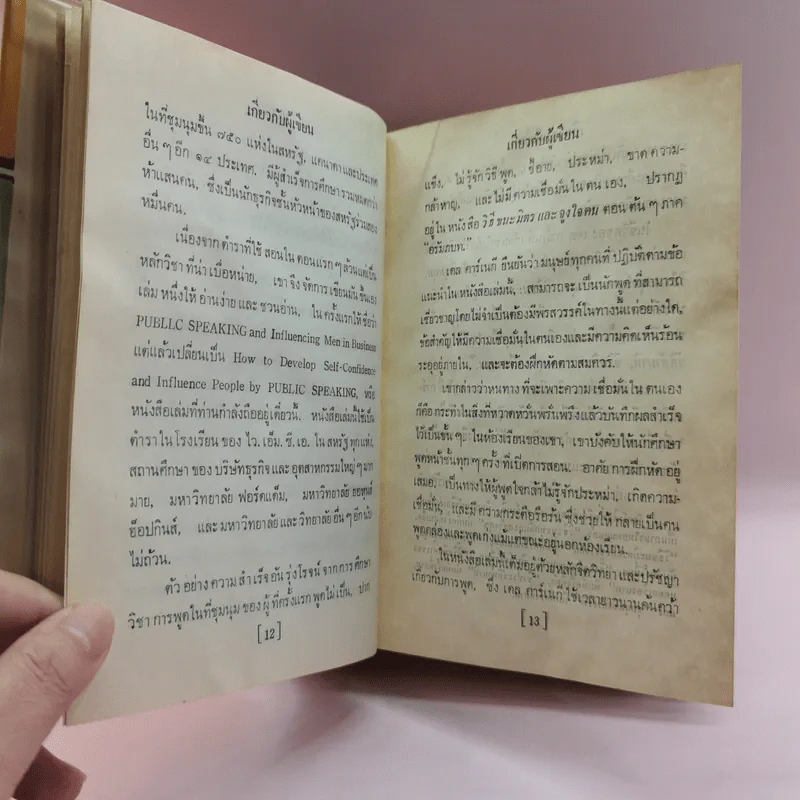 เกี่ยวกับผู้เขียน
ในที่ชุมนุมชั้น ๗๕๐ แห่งในสหรัฐ, แคนาดา และประเทศ
อื่น ๆ อีก ๑๔ ประเทศ. มีผู้สำเร็จการศึกษารวมหมดกว่า
ห้าแสนคน, ซึ่งเป็นนักธุรกิจชั้นหัวหน้าของสหรัฐร่วมสอง
หมื่นคน.
เนื่องจาก ตำราที่ใช้ สอนใน ตอนแรก ๆ ล้วนแต่เป็น
หลักวิชา ที่น่า เบื่อหน่าย, เขา จึง จัดการ เขียนมัน ขึ้นเอง
เล่ม หนึ่งให้ อ่านง่าย และ ชวนอ่าน, ใน ครั้งแรกให้ ชื่อว่า
PUBLLC SPEAKING and Influencing Men in Business
แต่แล้วเปลี่ยนเป็น How to Develop Self-Confidence
and Influence People by PUBLIC SPEAKING, หรือ
หนังสือเล่มที่ท่านกำลังถืออยู่เดี๋ยวนี้. หนังสือเล่มนี้ใช้เป็น
ตำรา ใน โรงเรียน ของ ไว. เอ็ม. ซี. เอ. ใน สหรัฐ ทุกแห่ง,
สถานศึกษา ของ บริษัทธุรกิจ และ อุตสาหกรรมใหญ่ ๆ มาก
มาย, มหาวิทยาลัย ฟอร์ดแฮ็ม, มหาวิทยาลัย
ฮ็อปกินส์, และ มหาวิทยาลัย และ วิทยาลัย อื่น ๆ อีก นับ
ไม่ถ้วน.
ตัว อย่าง ความ สำเร็จ อัน รุ่งโรจน์ จาก การ ศึกษา
วิชา การ พูด ในที่ ชุมนุม ของ ผู้ ที่ ครั้งแรก พูด ไม่ เป็น, ปาก
[12]
เกี่ยวกับผู้เขียน
แข็ง, ไม่ รู้จัก วิธี พูด, ขี้อาย, ประหม่า, ขาด ความ-
กล้าหาญ, และ ไม่ มี ความ เชื่อ มั่น ใน ตน เอง, ปรากฏ
อยู่ ใน หนังสือ วิธี ชนะ มิตร และ จูงใจ คน ตอน ต้น ๆ ภาค
“อรัมภบท.”
เดล คาร์เนกี ยืนยันว่า มนุษย์ ทุกคนที่ ปฏิบัติ ตามข้อ
แนะนำ ใน หนังสือเล่มนี้, สามารถ จะ เป็น นักพูด ที่สามารถ
เชี่ยวชาญโดยไม่จำเป็นต้องมีพรสวรรค์ในทางนี้แต่อย่างใด,
ข้อสำคัญให้มีความเชื่อมั่นในตนเองและมีความคิดเห็นร้อน
ระอุอยู่ภายใน, และจะต้องฝึกหัดตามสมควร.
เขากล่าวว่าหนทาง ที่จะเพาะความ เชื่อมั่นใน ตนเอง
ก็คือ กระทำ ในสิ่งที่ หวาดหวั่นพรั่นพรึง แล้วบันทึก ผลสำเร็จ
ไว้เป็นขั้น ๆ ในห้องเรียนของเขา, เขาบังคับให้นักศึกษา
พูดหน้าชั้นทุก ๆ ครั้ง ที่เปิดการสอน. อาศัย การฝึกหัด อยู่
เสมอ, เป็นทางให้ผู้พูดใจกล้าไม่รู้จักประหม่า, เกิดความ-
เชื่อมั่น, และมี ความกระตือรือร้น ซึ่งช่วยให้ กลายเป็นคน
พูดคล่องและพูดเก่งแม้แต่ขณะอยู่นอกห้องเรียน.
ในหนังสือเล่มนี้เต็มอยู่ด้วยหลักจิตวิทยา และปรัชญา
เกี่ยวกับการพูด, ซึ่ง เดล คาร์เนกี ใช้เวลายาวนานค้นคว้า
[13]